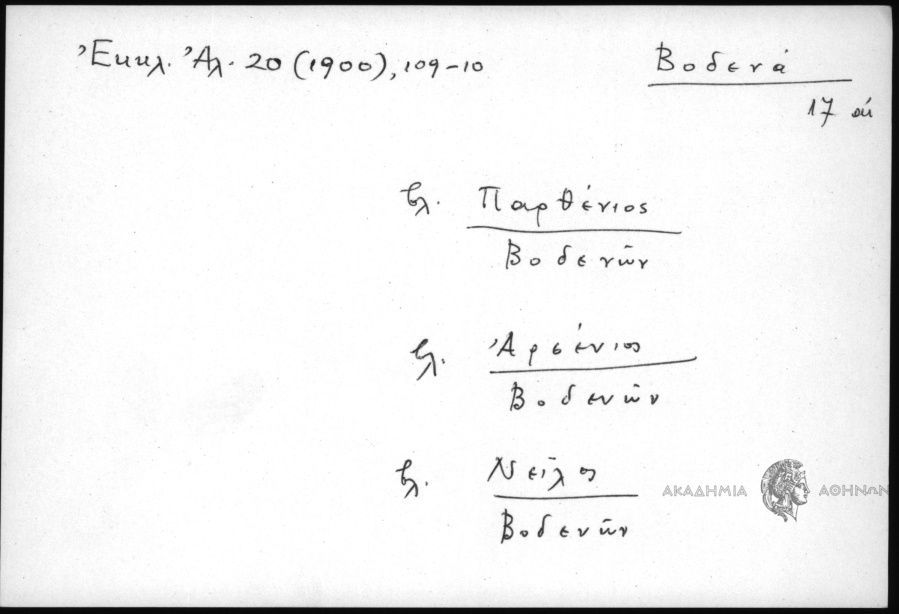 Ἐκκλ. Ἀλ. 20 (1900), 109-10
Βοδενά
17 αἰ
βλ. Παρθένιος
Βοδενῶν
βλ. Ἀρσένιος
Βοδενῶν
βλ. Νεῖλος
Βοδενῶν
ΑΚΑΔΗΜΙΑ ΑΘΗΝΩΝ